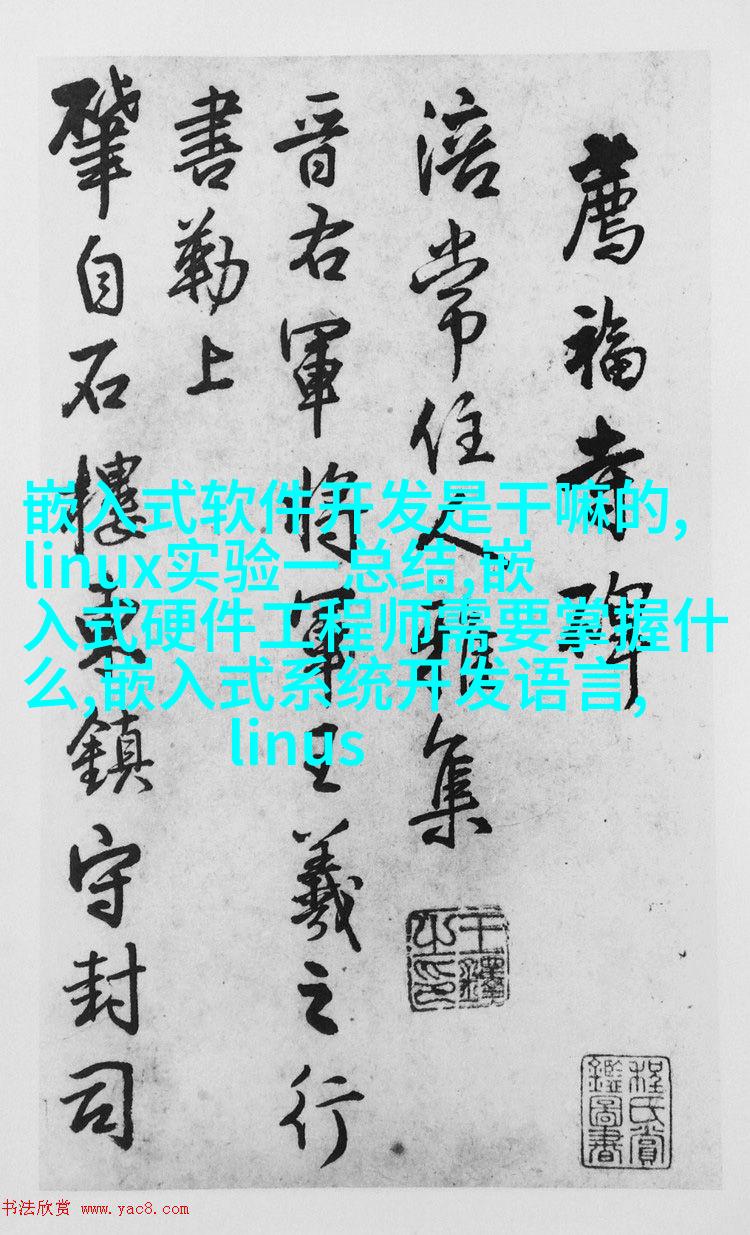 薦福寺碑
涪常住人雅集
晉右軍將軍王羲之行
書勒上
肇自石樓東鎮守封司
程氏賞鑑圖書
嵌入式软件开发是干嘛的,
linux实验一总结,嵌
入式硬件工程师需要掌握什
么,嵌入式系统开发语言,
linus
书法欣赏 www.yac8.com